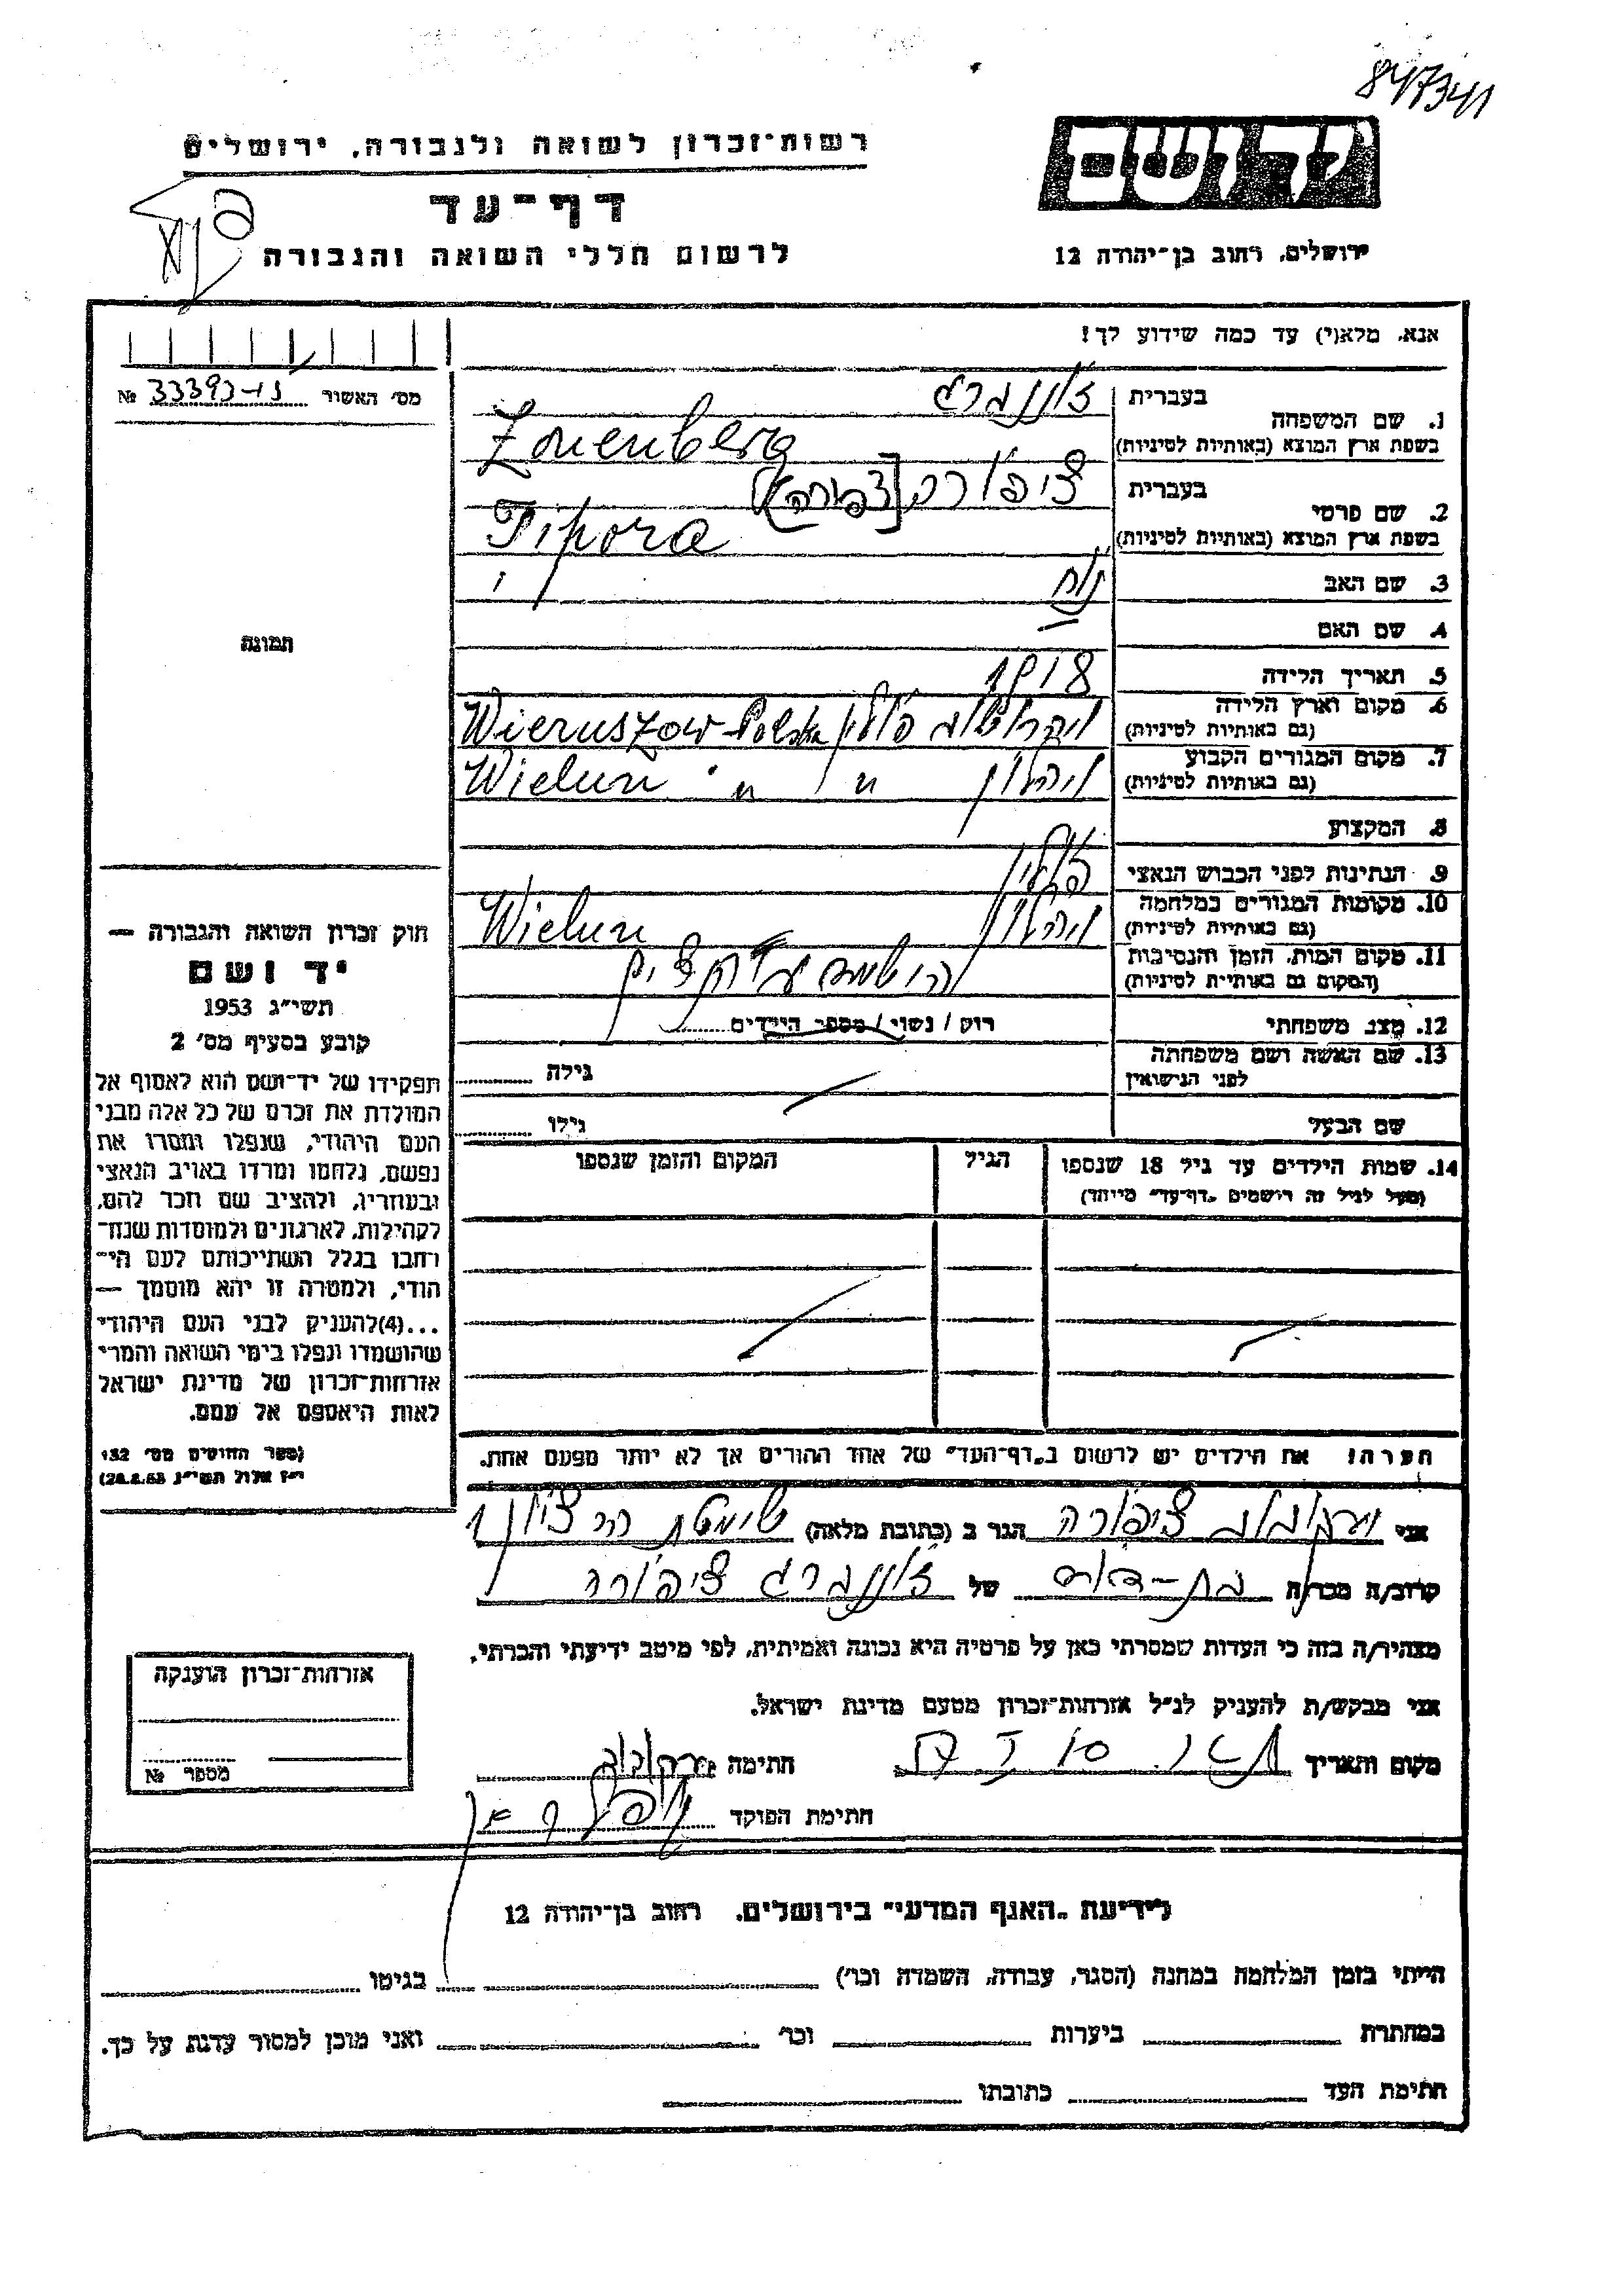 847341
רשות־זכרון לשואה ולגבורה, ירושלים
יד ושם
דף־עד
לרשום חללי השואה והגבורה
ירושלים, רחוב בן־יהודה 12
אנא, מלא(י) עד כמה שידוע לך!
מס' האשור
№ 33393
1. שם המשפחה
בעברית זוננברג
בשפת ארץ המוצא (באותיות לטיניות) Zonenberg
2. שם פרטי
בעברית ציפורה [צפורה]
בשפת ארץ המוצא (באותיות לטיניות) Tipora
3. שם האב נוח
4. שם האם
5. תאריך הלידה 1918
6. מקום וארץ הלידה
(גם באותיות לטיניות) פולין Wieruszow-Polska
7. מקום המגורים הקבוע
(גם באותיות לטיניות) וילון " " Wielun
8. המקצוע
9. הנתינות לפני הכבוש הנאצי פולין
10. מקומות המגורים במלחמה
(גם באותיות לטיניות) Wielun
11. מקום המות, הזמן והנסיבות
(המקום גם באותיות לטיניות)
12. מצב משפחתי רוק / נשוי / מספר הילדים
13. שם האשה ושם משפחתה
לפני הנישואין גילה
שם הבעל גילו
14. שמות הילדים עד גיל 18 שנספו הגיל המקום והזמן שנספו
(מעל לגיל זה רושמים „דף־עד" מיוחד)
הערה! את הילדים יש לרשום ב„דף־העד" של אחד ההורים אך לא יותר מפעם אחת.
תמונה
חוק זכרון השואה והגבורה —
יד ושם
תשי"ג 1953
קובע בסעיף מס' 2
תפקידו של יד־ושם הוא לאסוף אל
המולדת את זכרם של כל אלה מבני
העם היהודי, שנפלו ומסרו את
נפשם, נלחמו ומרדו באויב הנאצי
ובעוזריו, ולהציב שם וזכר להם,
לקהילות, לארגונים ולמוסדות שנח־
רבו בגלל השתייכותם לעם הי־
הודי, ולמטרה זו יהא מוסמך —
...(4)להעניק לבני העם היהודי
שהושמדו ונפלו בימי השואה והמרי
אזרחות־זכרון של מדינת ישראל
לאות היאספם אל עמם.
(ספר החוקים מס' 132
י"ז אלול תשי"ג 28.8.53)
אני ציפורה הגר ב (כתובת מלאה)
קרוב/ה מכר/ה בת-דוד של זוננברג ציפורה
מצהיר/ה בזה כי העדות שמסרתי כאן על פרטיה היא נכונה ואמיתית, לפי מיטב ידיעתי והכרתי.
אני מבקש/ת להעניק לנ"ל אזרחות־זכרון מטעם מדינת ישראל.
מקום ותאריך חתימה
חתימת הפוקד
אזרחות־זכרון הוענקה
מספר №
לידיעת „האגף המדעי" בירושלים, רחוב בן־יהודה 12
הייתי בזמן המלחמה במחנה (הסגר, עבודה, השמדה וכו') בגיטו
במחתרת ביערות וכו' ואני מוכן למסור עדות על כך.
חתימת העד כתובתו